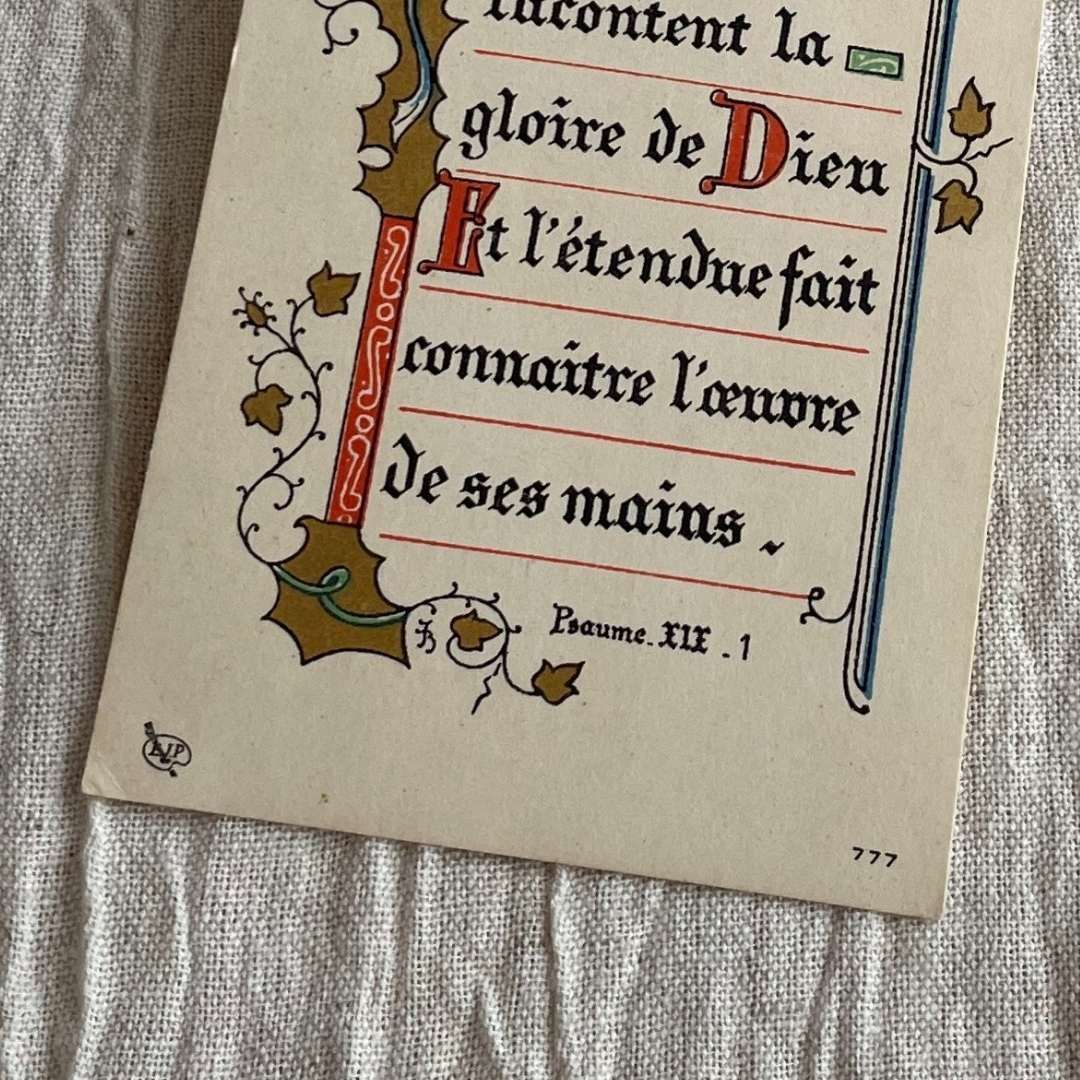 racontent la
gloire de Dieu
Et l'étendue fait
connaître l'œuvre
de ses mains.
Psaume. XIX. 1
EJP
777